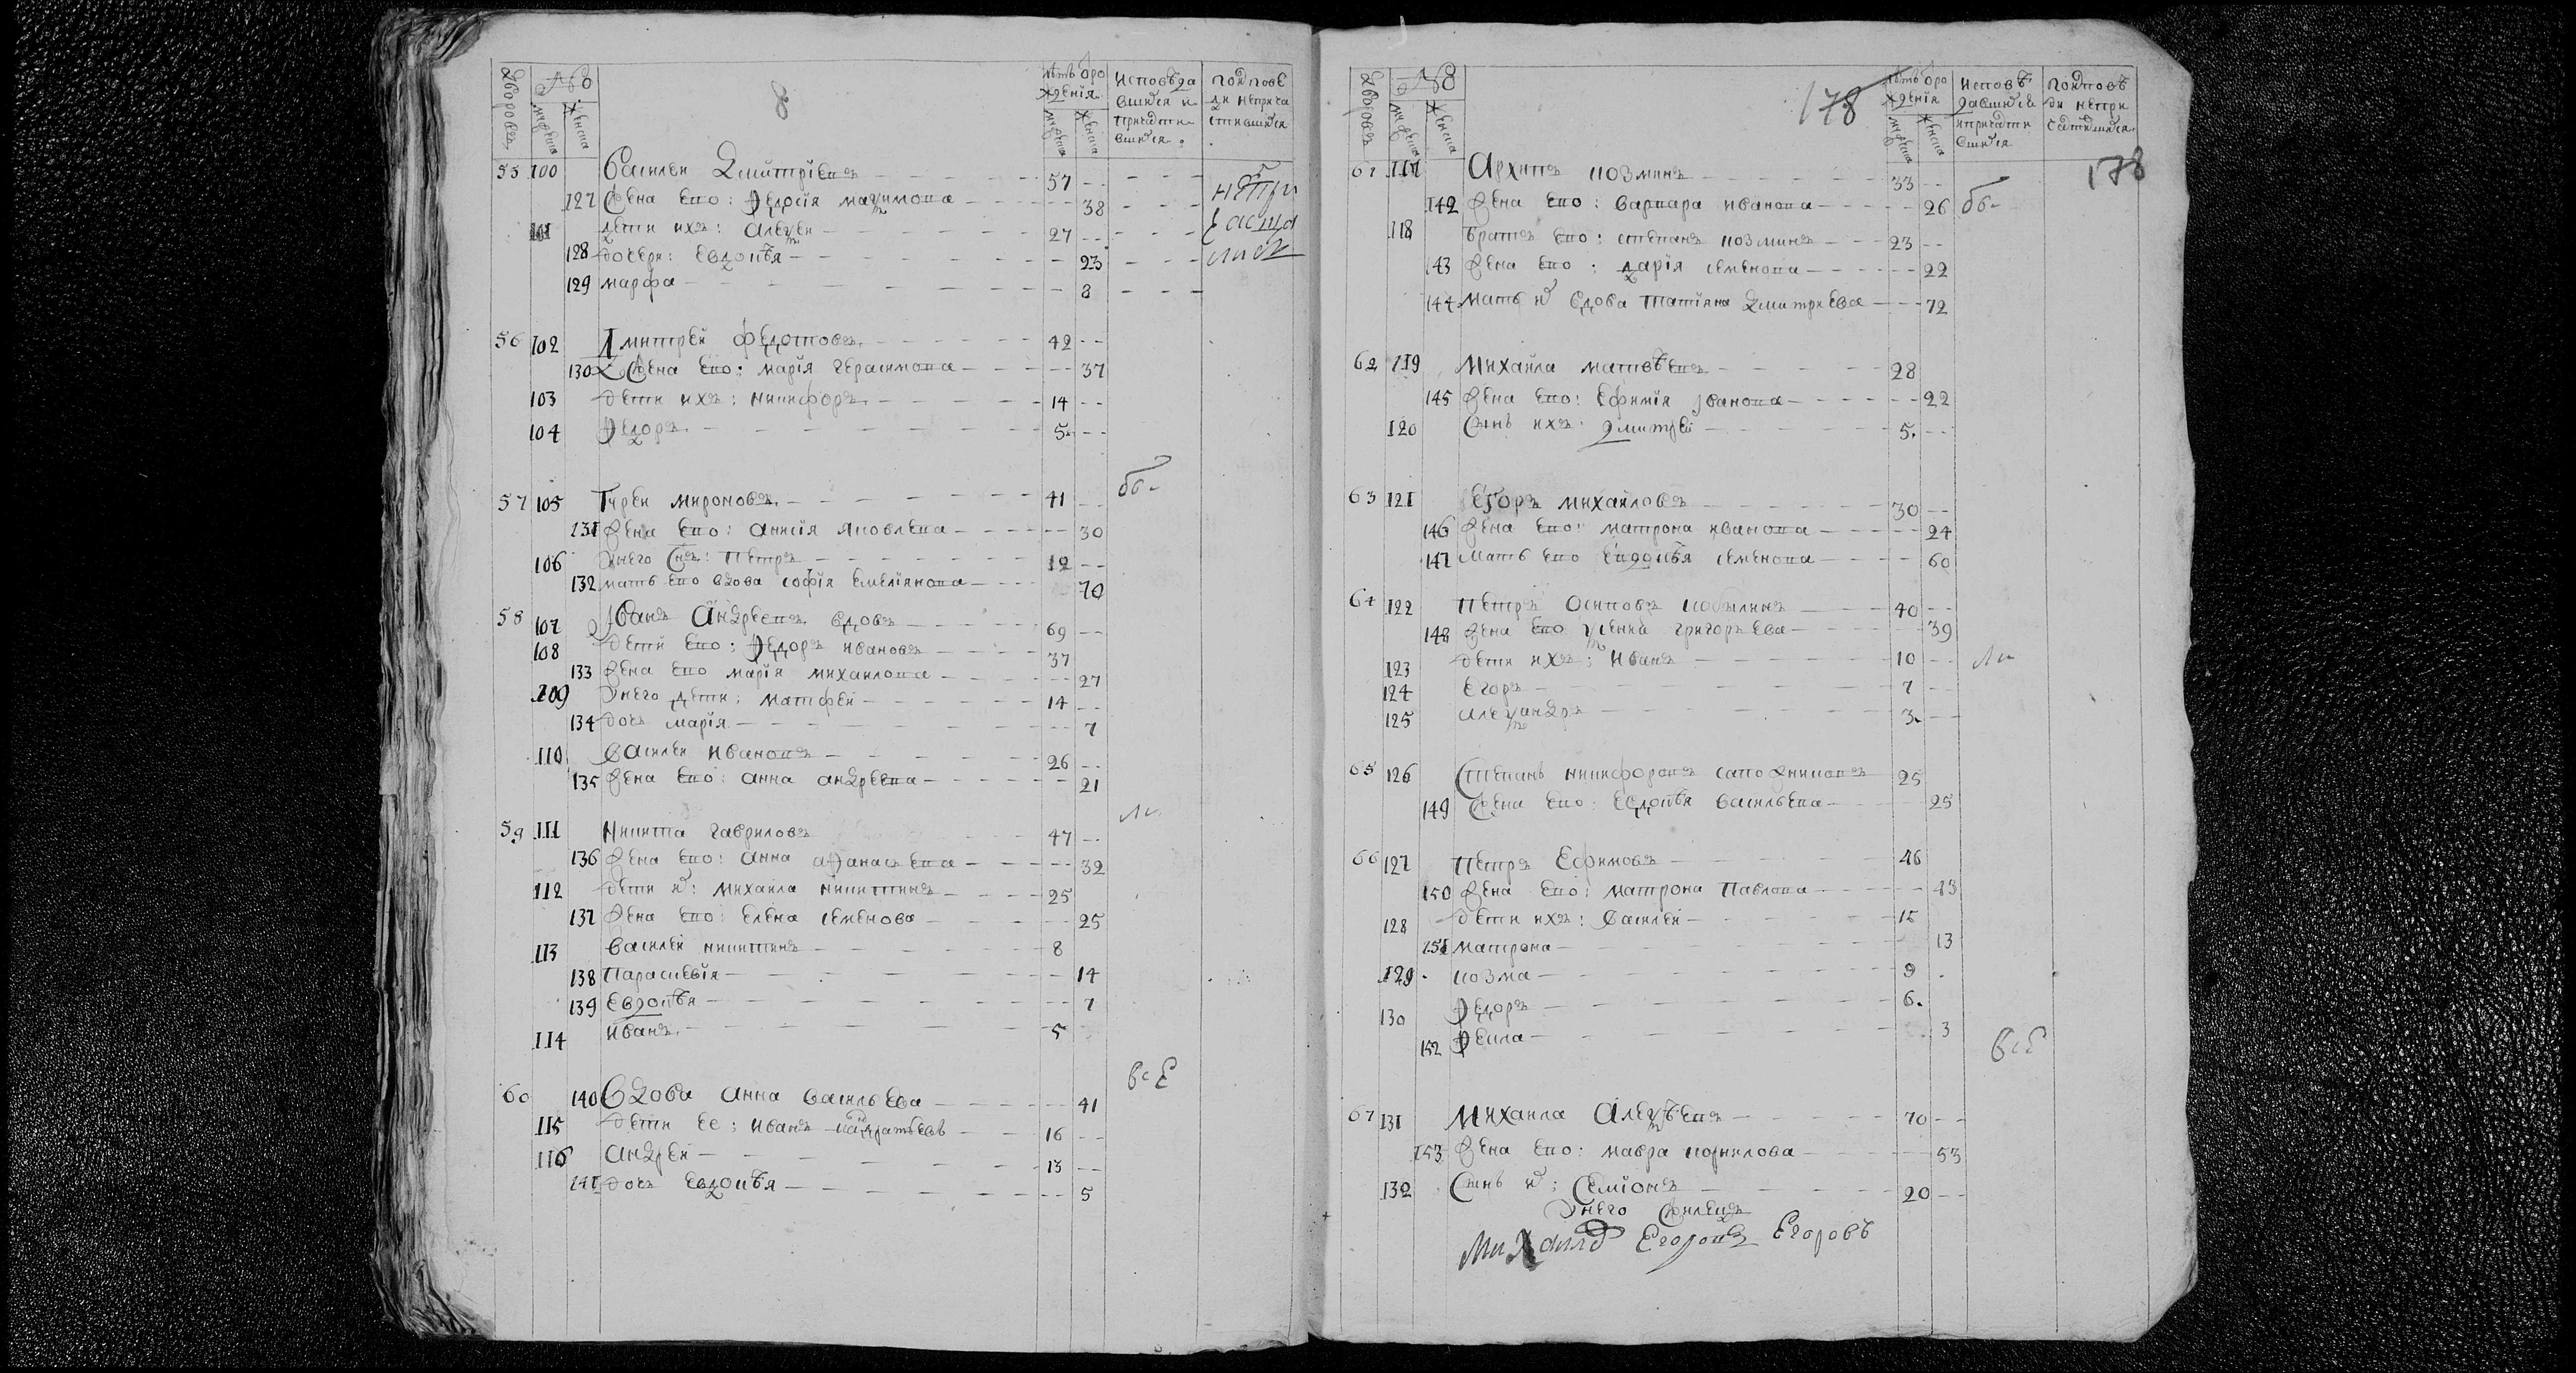 Дворовъ
№
8
лѣтъ от ро
жденія
исповѣда
вшихся и
причасти
вшихся
по исповѣ
ди не прича
стившихся
55 100 Василеи Дмитріевъ 57
127 Жена его: Ѳедосія маѯимова 38
101 дети ихъ: Алеѯеи 27
128 дочери: Евдокѣя 23
129 марфа 8
не при
часща
лись
56 102 Дмитреи Федотовъ 42
130 Жена его: марія Герасимова 37
103 дети ихъ: никифоръ 14
104 Ѳедоръ 5
57 105 Гуреи мироновъ 41
131 Жена его: анисія яковлева 30
106 У него Снъ: Петръ 12
132 мать его вдова софія Емеліянова 70
58 107 Іванъ Андреевъ вдовъ 69
108 дети его: Ѳедоръ ивановъ 37
133 жена его марія михаилова 27
109 У него дети: матфеи 14
134 дочь марія 7
110 Василеи ивановъ 26
135 жена его: анна андреева 21
59 111 Никита гавриловъ 47
136 жена его: анна аѲанасьева 32
112 дети их: михаила никитинъ 25
137 жена его: елена семенова 25
113 василеи никитинъ 8
138 Параскевія 14
139 Евдокѣя 7
114 иванъ 5
все
60 140 Вдова анна васильева 41
115 дети ее: иванъ кадратьевъ 16
116 Андреи 13
141 дочь Евдокѣя 5
Дворовъ
№
178
лѣтъ от ро
жденія
исповѣ
давшихся
и причасти
вшихся
по исповѣ
ди не при
частившихся
178
61 117 Архипъ козминъ 33
142 жена его: варвара иванова 26
118 братъ его: степанъ козминъ 23
143 жена его: дарія семенова 22
144 мать их вдова татіяна дмитриева 72
62 119 Михаила матвѣевъ 28
145 жена его: Ефимія Іванова 22
120 Сынъ ихъ дмитреи 5
63 121 Егоръ михаиловъ 30
146 жена его: матрона иванова 24
147 мать его евдокѣя семенова 60
64 122 Петръ осиповъ кобылинъ 40
148 жена его Ѯения григорьева 39
123 дети ихъ: иванъ 10
124 Егоръ 7
125 алеѯандръ 3
65 126 Степанъ никифоровъ сапожниковъ 25
149 Жена его: евдокѣя васильева 25
66 127 Петръ Ефимовъ 46
150 жена его: матрона Павлова 43
128 дети ихъ: Василеи 15
151 матрона 13
129 козма 9
130 Ѳедоръ 6
152 Ѳекла 3
все
67 131 Михаила Алеѯѣевъ 70
153 жена его: мавра корнилова 53
132 Сынъ их: Семіонъ 20
У него
Михаилъ Егоровъ Егоровъ